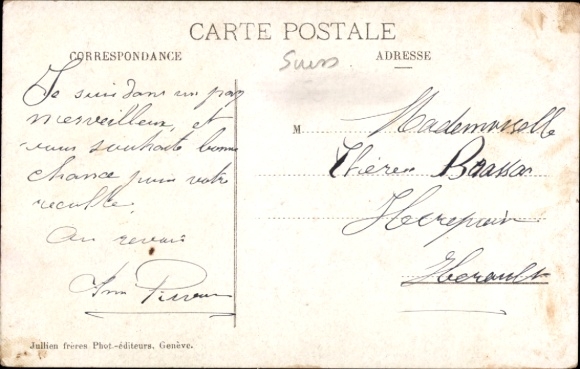 CARTE POSTALE
CORRESPONDANCE
ADRESSE
Je suis dans un pays
merveilleux, et
vous souhaite bonne
chance pour votre
recolte,
Au revoir
M Mademoiselle
Herepian
Herault
Jullien frères Phot.-éditeurs, Genève.